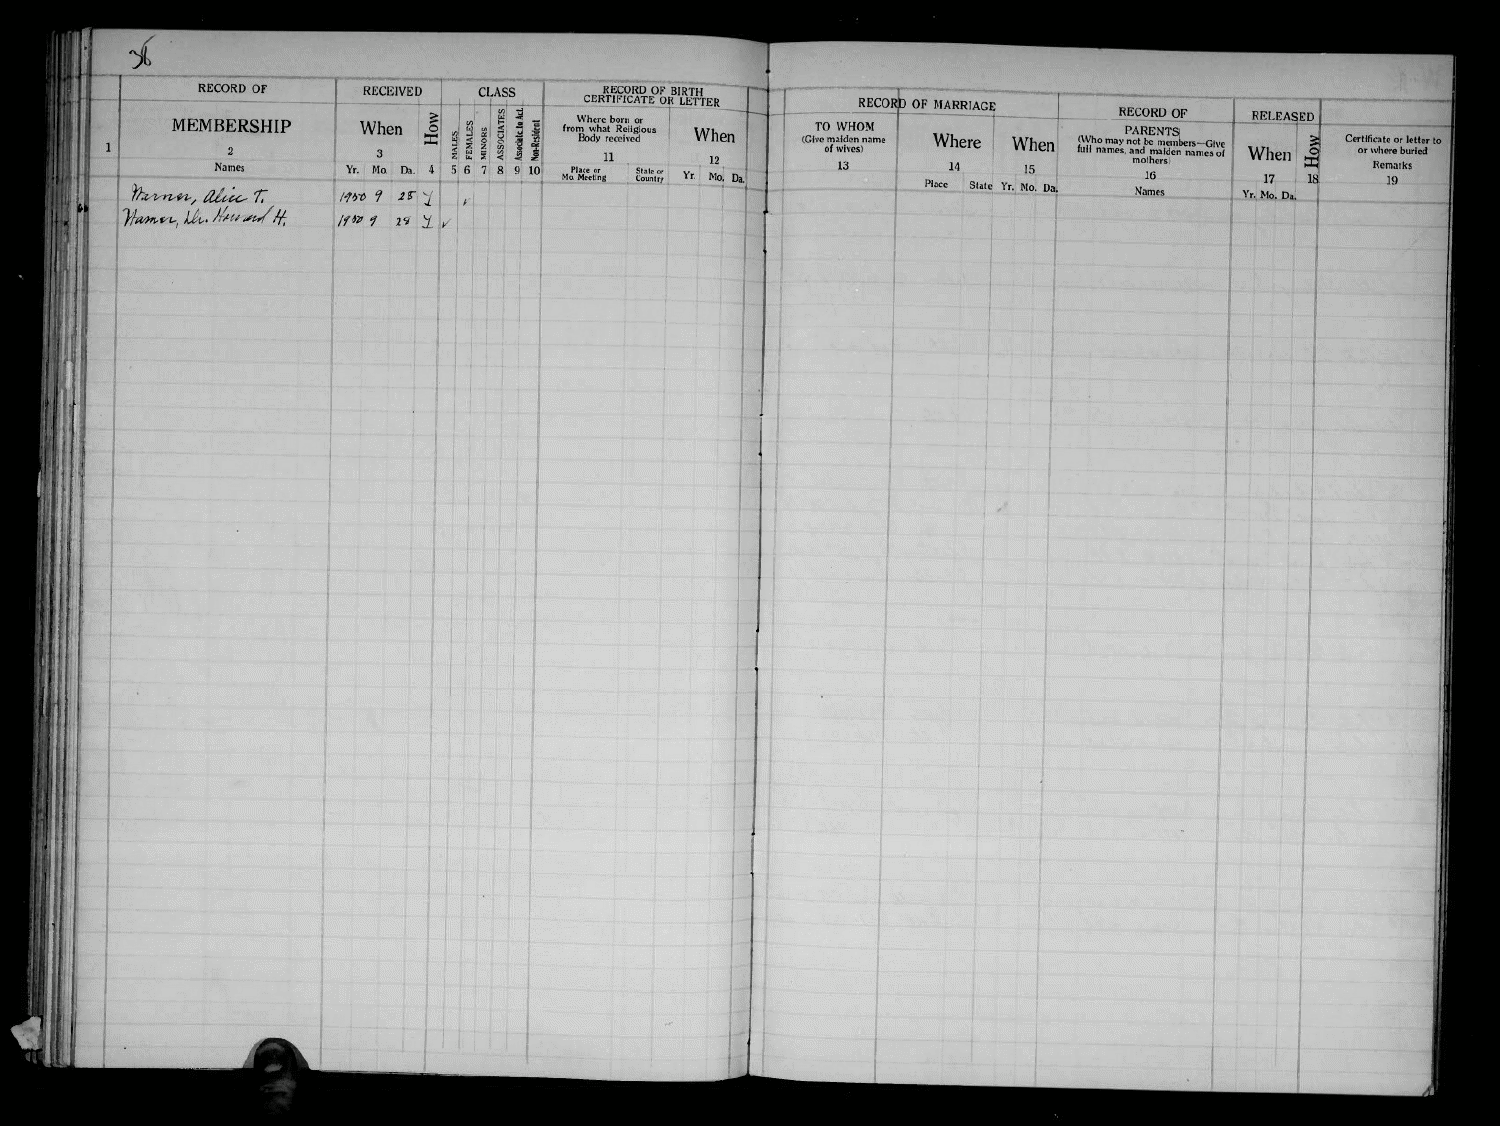 36
RECORD OF
MEMBERSHIP
1
2
Names
RECEIVED
When
3
Yr. Mo. Da.
How
4
CLASS
MALES
FEMALES
MINORS
ASSOCIATES
Associate, to Act.
Non-Resident
5 6 7 8 9 10
RECORD OF BIRTH
CERTIFICATE OR LETTER
Where born or
from what Religious
Body received
11
Place or
Mo. Meeting
State or
Country
When
12
Yr. Mo. Da.
RECORD OF MARRIAGE
TO WHOM
(Give maiden name
of wives)
13
Where
14
Place State
When
15
Yr. Mo. Da.
RECORD OF
PARENTS
(Who may not be members—Give
full names, and maiden names of
mothers)
16
Names
RELEASED
When
17
Yr. Mo. Da.
How
18
Certificate or letter to
or where buried
Remarks
19
Warner, Alice T. 1950 9 28 ✓
Warner, Dr. Howard H. 1950 9 28 ✓